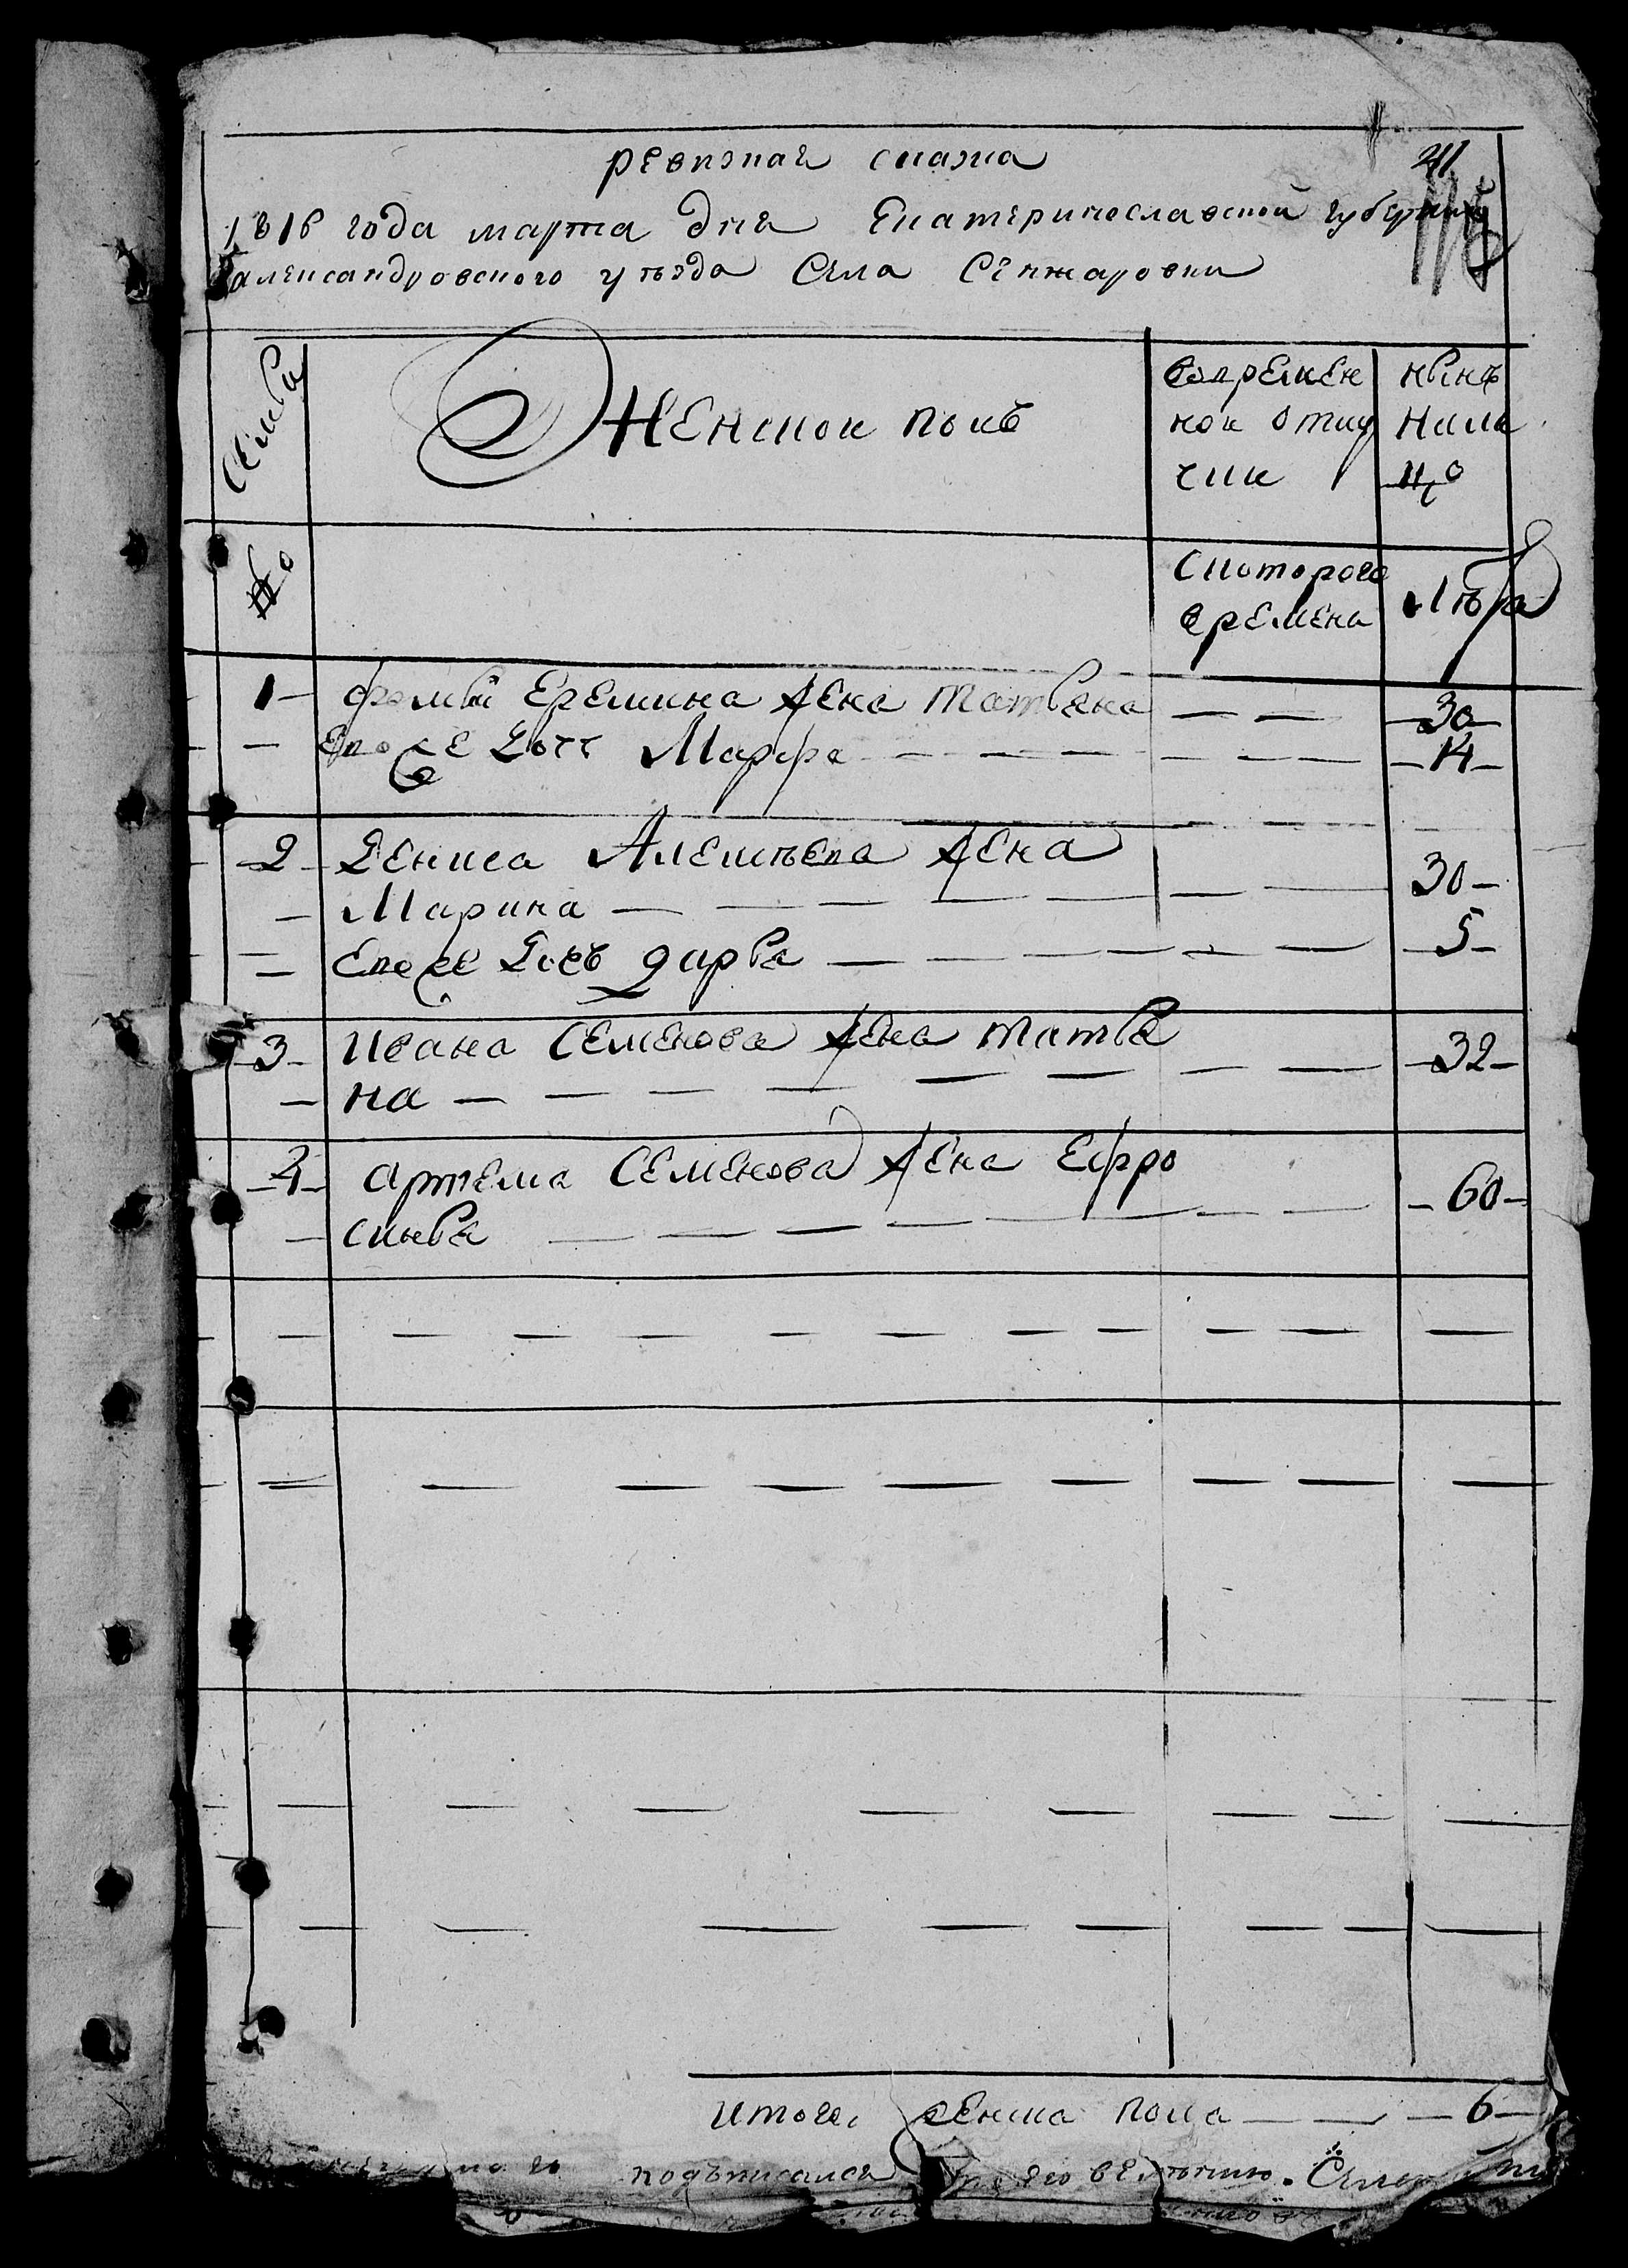 ревизная сказка
241
1816 года марта дня Екатеринославской губернии
александровского уѣзда села Сенжаровки
Семьи
Женской полъ
вовремен
ной отлу
чки
нынѣ
нали
цо
№
Скоторого
времени
Лѣта
1 Фомы Еремина жена Татьяна 30
Ево же дочь Марфа 14
2 Дениса Алексѣева жена
Марина 30
Ево же дочь дарья 5
3 Ивана Семенова жена татья
на 32
4 Артема Семенова жена Ефро
синья 60
итого женска пола 6
подъписался